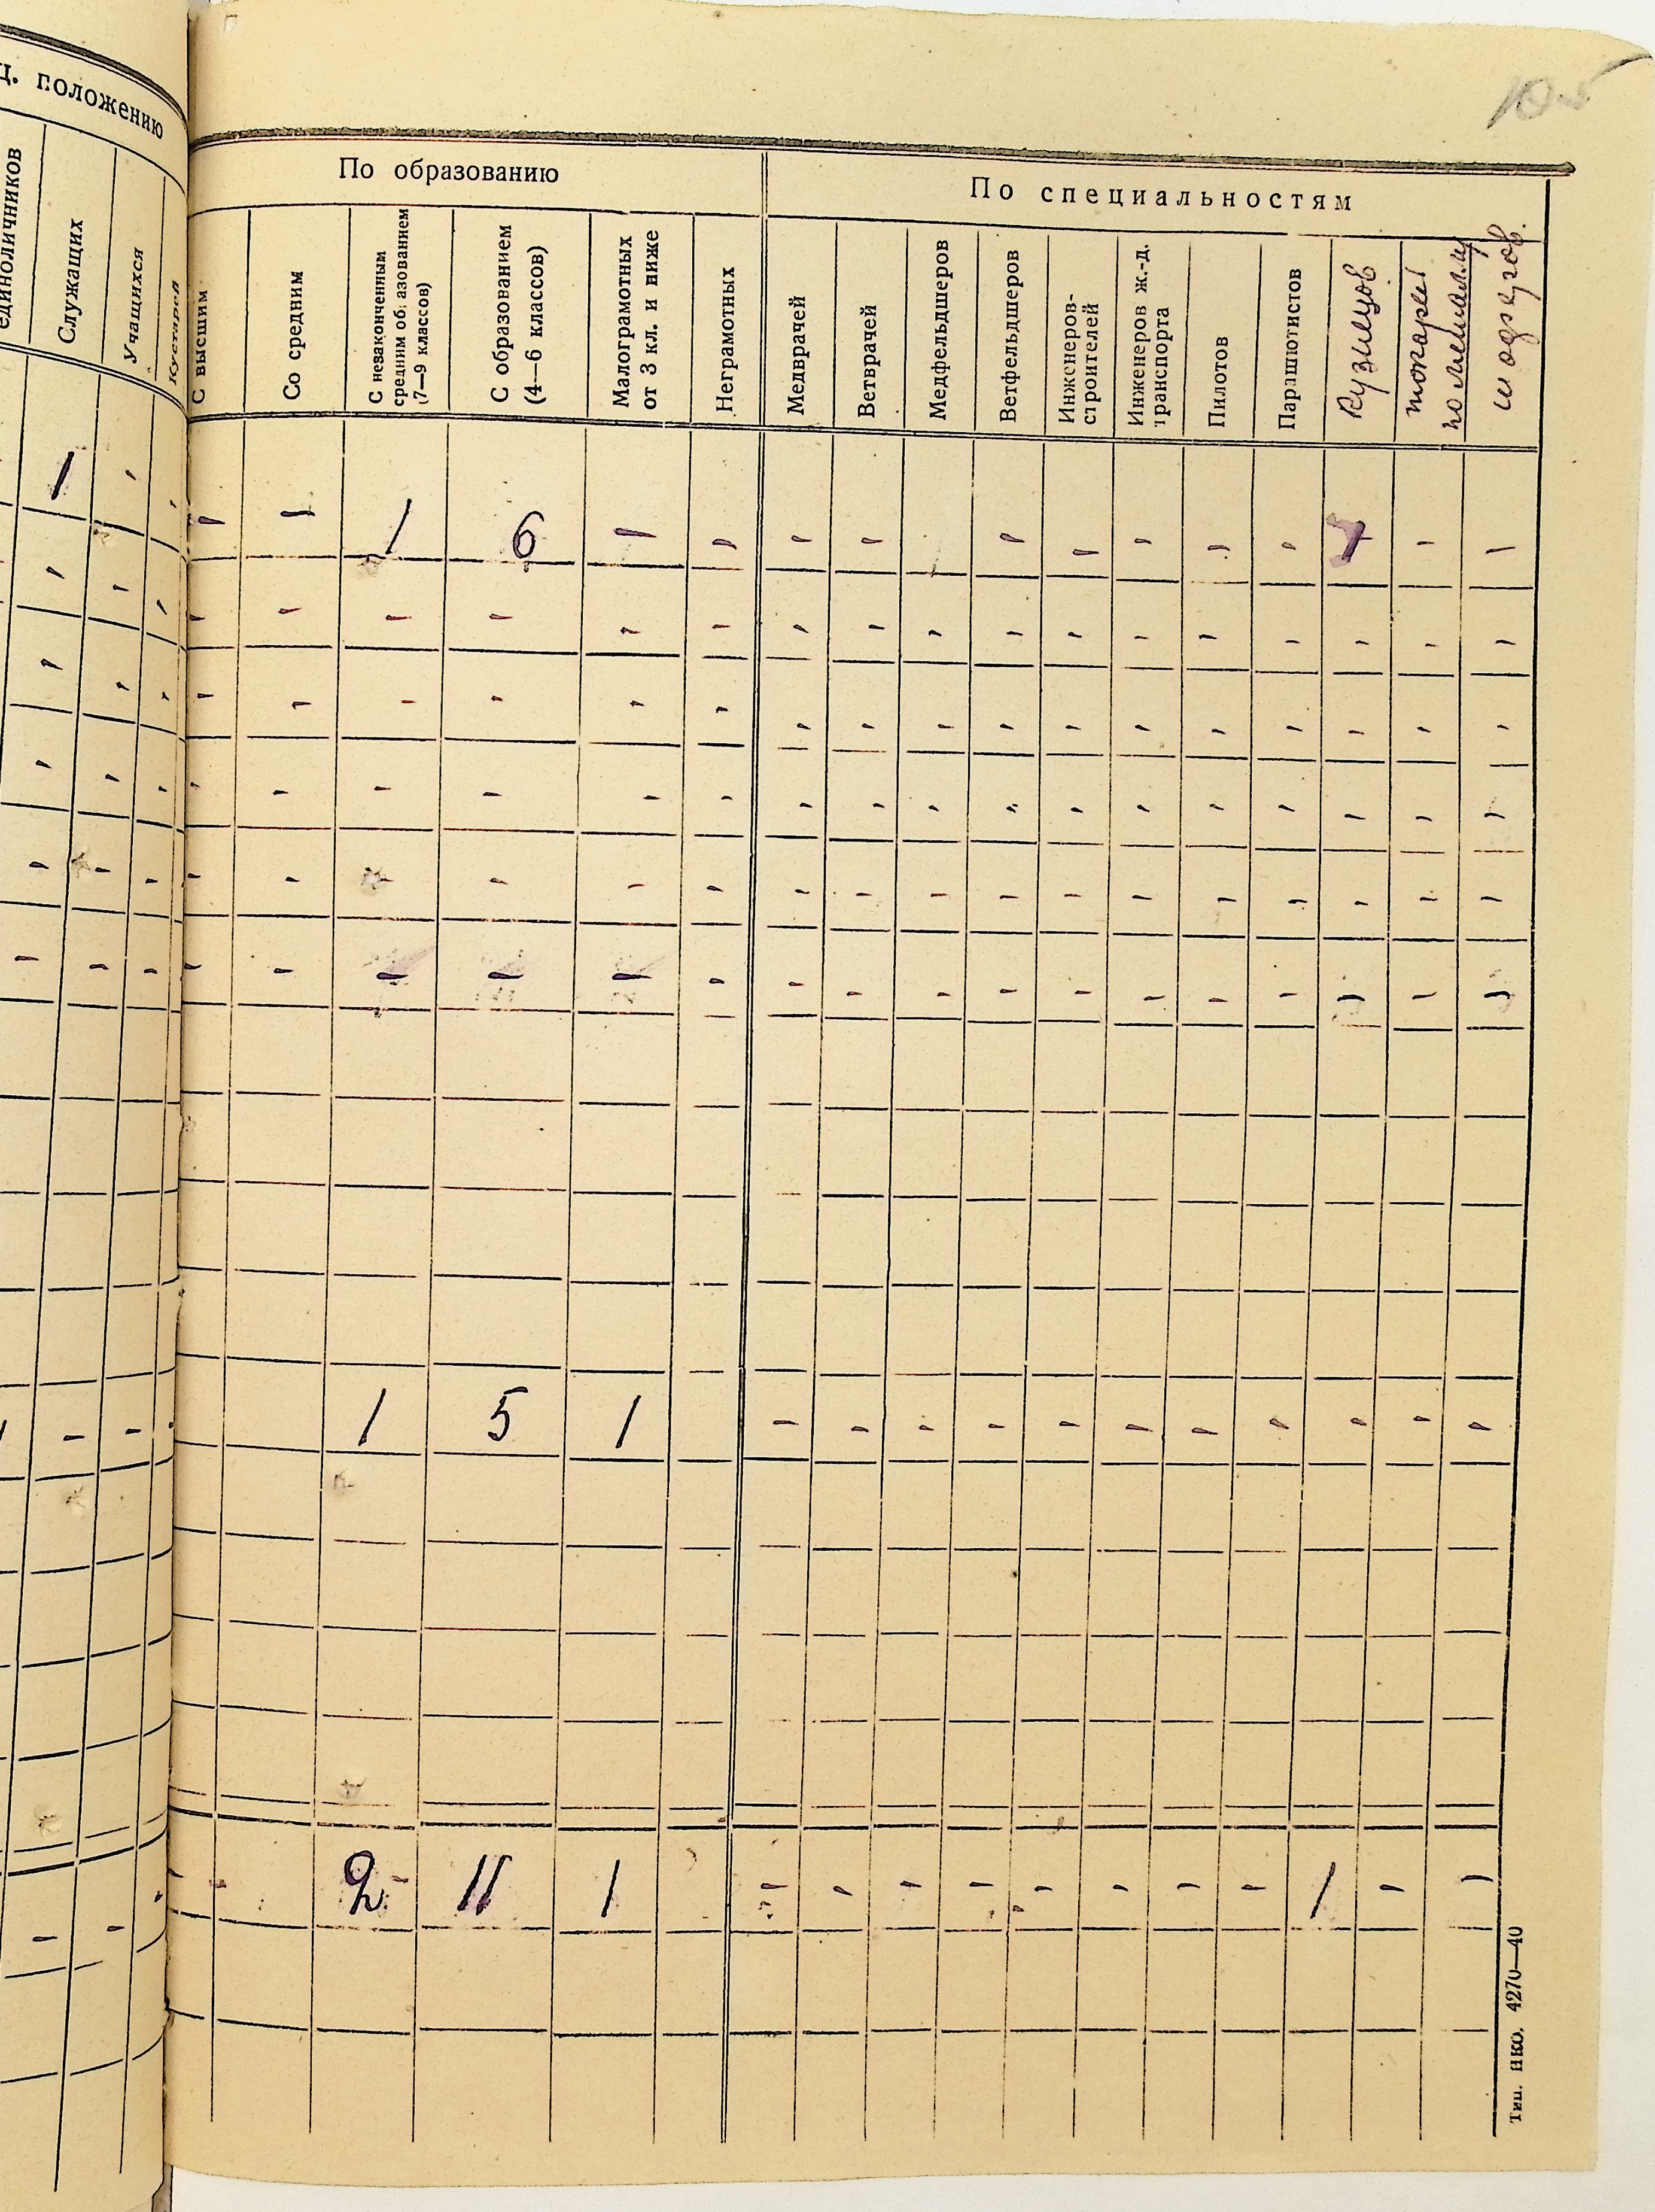 ц. положению
единоличников
Служащих
Учащихся
Кустарей
По образованию
По специальностям
С высшим
Со средним
С незаконченным
средним образованием
(7—9 классов)
С образованием
(4—6 классов)
Малограмотных
от 3 кл. и ниже
Неграмотных
Медврачей
Ветврачей
Медфельдшеров
Ветфельдшеров
Инженеров-
строителей
Инженеров ж.-д.
транспорта
Пилотов
Парашютистов
кузнецов
токарей
по металлу
1 - -
- - 1 6 - - - - - - - - - - -
- - -
- - - - - - - - - - - - - - - - -
- - -
- - - - - - - - - - - - - - - - -
- - -
- - - - - - - - - - - - - - - - -
- - -
- - - - - - - - - - - - - - - - -
- - -
- - - - - - - - - - - - - - - - -
- -
1 5 1 - - - - - - - - - - -
- -
2 11 1 - - - - - - - - 1 - -
Тип. НКО. 4270—40